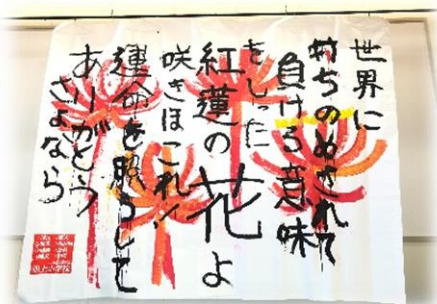 世界に
打ちのめされて
負ける意味
をしった
紅蓮の花よ
咲きほこれ！
運命を照らして
ありがとう
さよなら